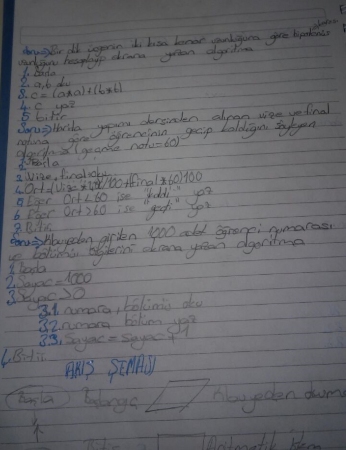 Soru=> Bir dik üçgenin iki kısa kenar uzunluğuna göre hipotenüs
uzunluğunu hesaplayıp ekrana yazan algoritma
1. Başla
2. a,b oku
3. c = (a*a)+(b*b)
4. c yaz
5. bitir
Soru=> yapımı dersinden alınan vize ve final
notuna göre öğrencinin geçip kaldığını söyleyen
algoritma (geçme notu=60)
1. Başla
2. Vize, final oku
4. Ort=(Vize*40/100+(final*60/100
5. Eğer Ort<60 ise "kaldı" yaz
6. Eğer Ort>60 ise "geçti" yaz
7. Bitir
Soru=> Klavyeden girilen 1000 adet öğrenci numarası
ve bölümü bilgilerini ekrana yazan algoritma
1. Başla
2. Sayac=1000
3. Sayac>0
3.1. numara, bölümü oku
3.2. numara, bölüm yaz
3.3. Sayac = Sayac+1
4. Bitir
AKIŞ ŞEMASI
Başla Başlangıç Klavyeden okuma
Bitir Aritmetik işlem